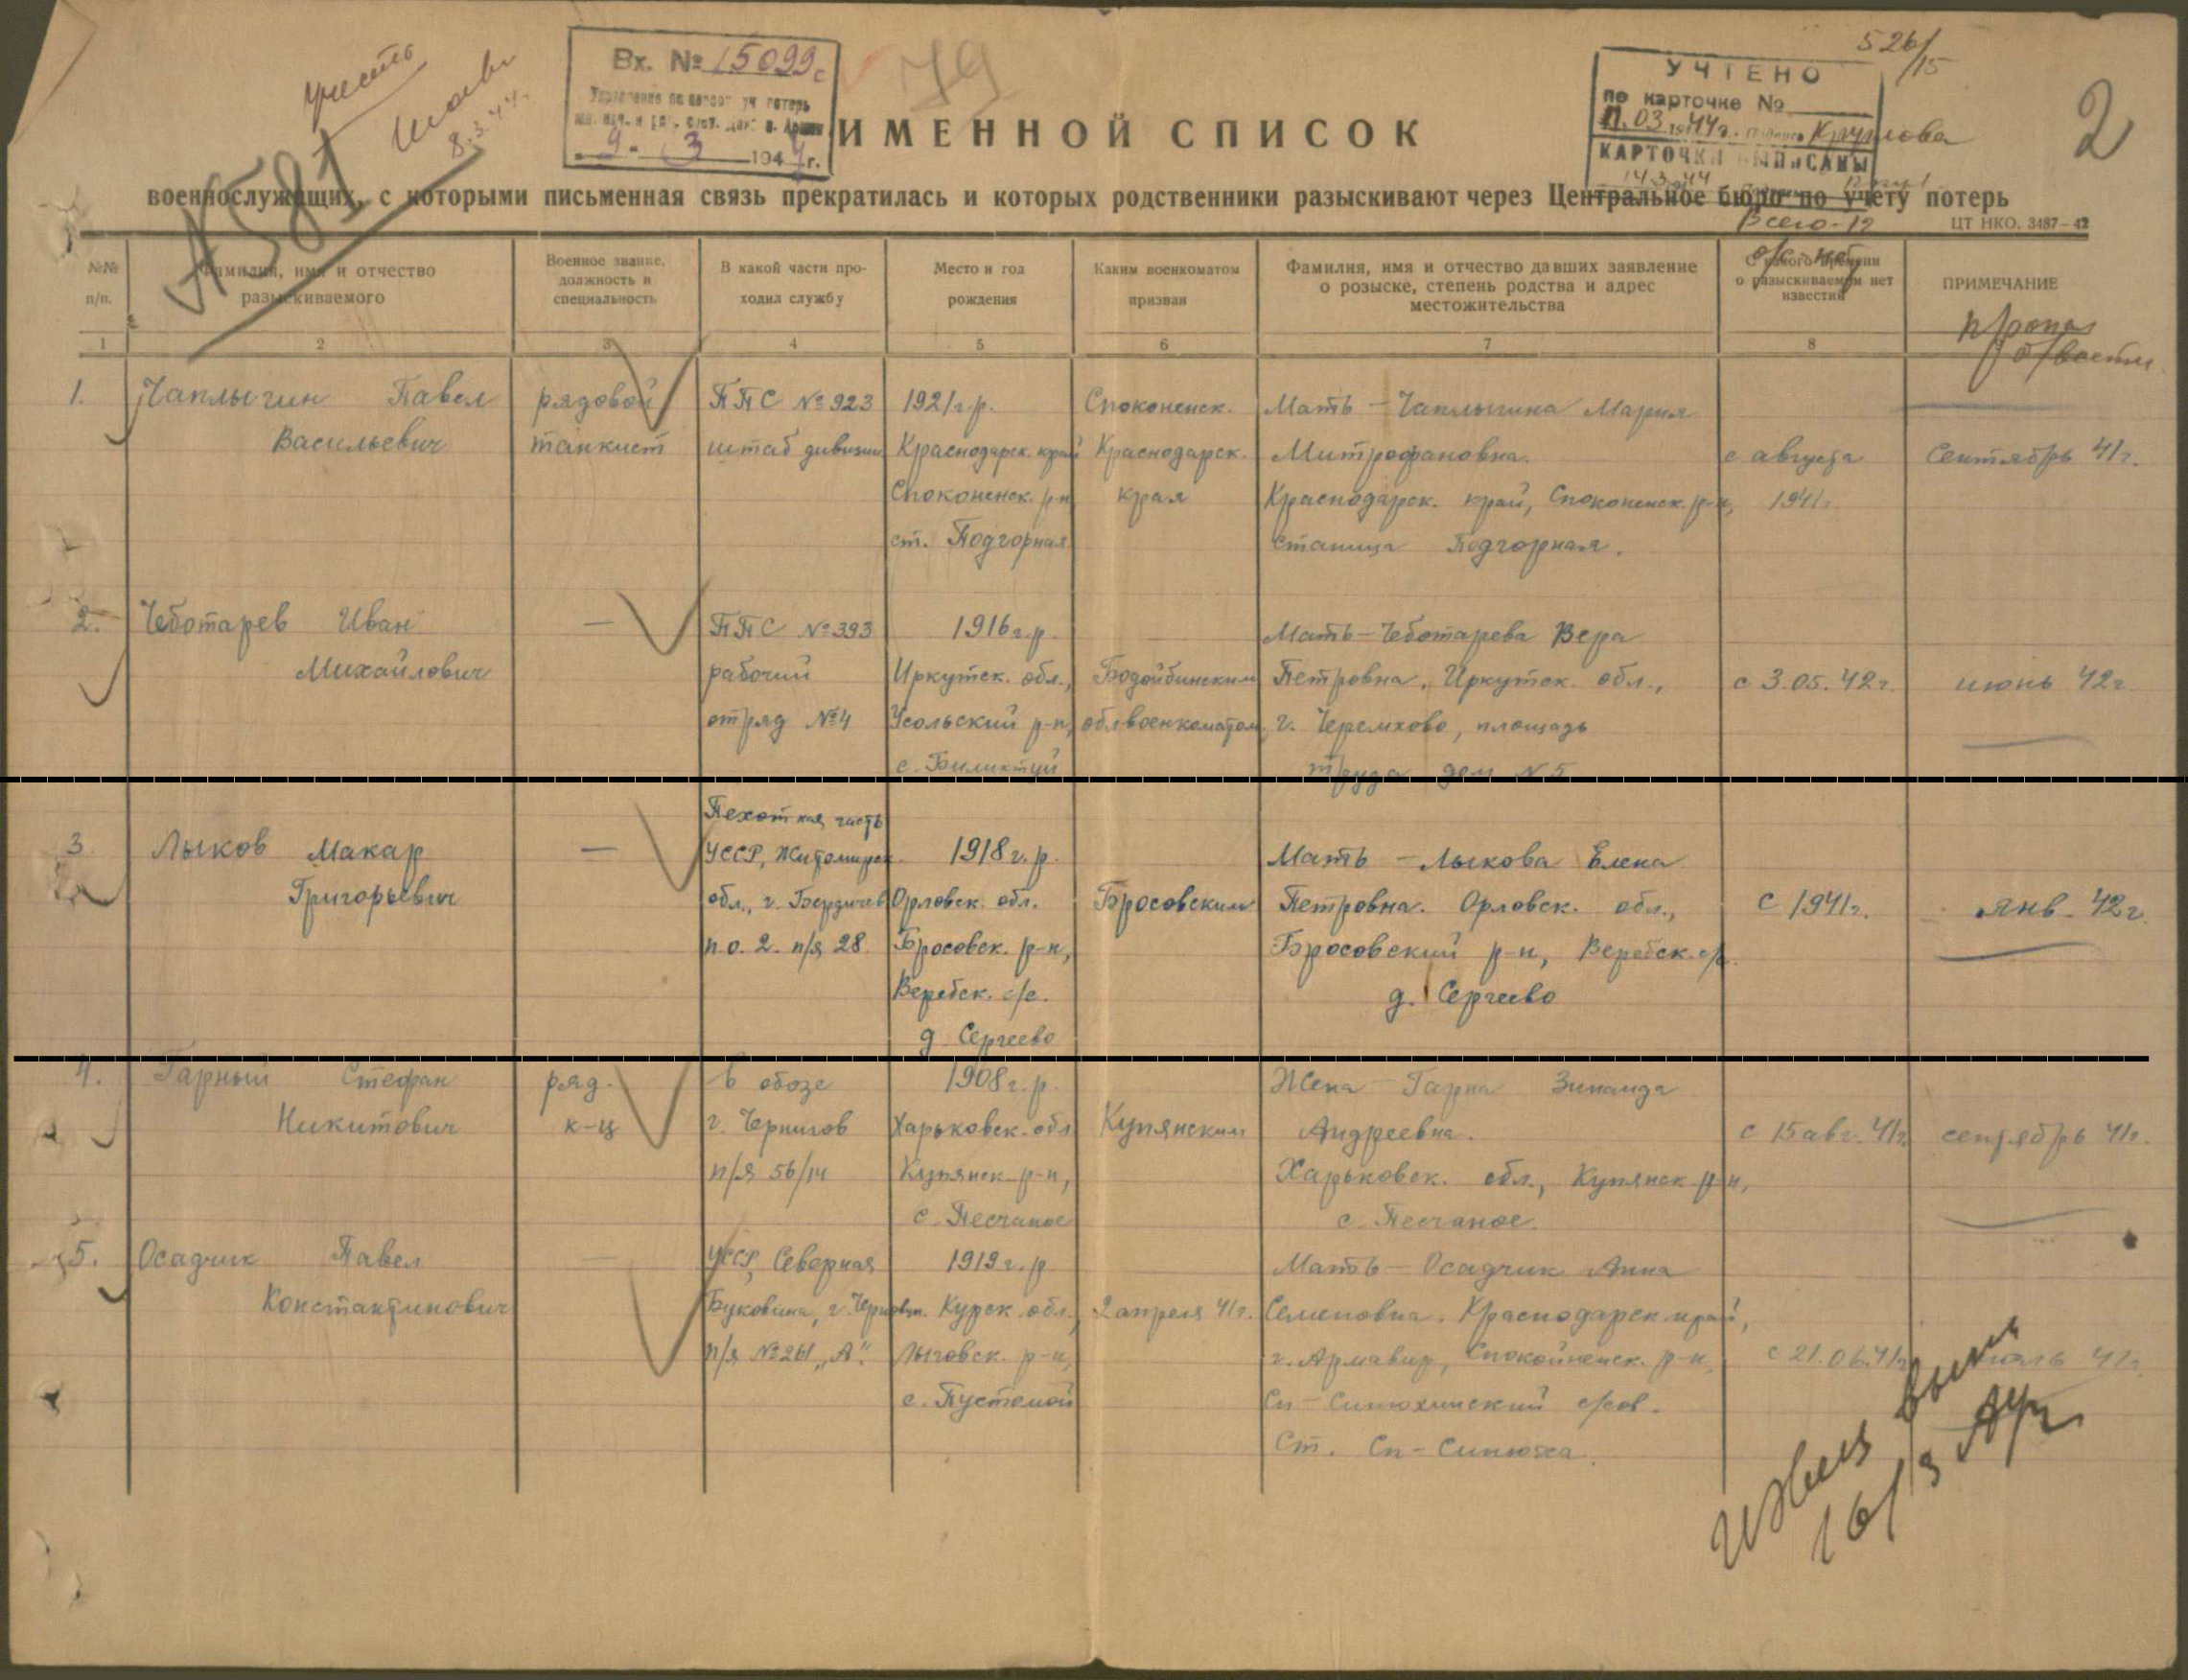 526/15
учесть
8.3.44.
Вх. № 15099с
9. 3 1944г.
79
УЧТЕНО
по карточке №
11.03 1944г. подпись Круглова
КАРТОЧКИ ВЫПИСАНЫ
14.3.44
Всего-12
2
№581
ИМЕННОЙ СПИСОК
военнослужащих, с которыми письменная связь прекратилась и которых родственники разыскивают через Центральное бюро по учету потерь
ЦТ НКО. 3487–42
№№ п/п.
Фамилия, имя и отчество разыскиваемого
Военное звание, должность и специальность
В какой части проходил службу
Место и год рождения
Каким военкоматом призван
Фамилия, имя и отчество давших заявление о розыске, степень родства и адрес местожительства
С какого времени о разыскиваемом нет известий
ПРИМЕЧАНИЕ
1 2 3 4 5 6 7 8
пропал
б/вести
1. Чаплыгин Павел рядовой ППС № 923 1921г.р. Споконенск. Мать – Чаплыгина Мария
Васильевич танкист штаб дивизии Краснодарск. край Краснодарск. Митрофановна. с августа Сентябрь 41г.
Споконенск. р-н края Краснодарск. край, Споконенск. р-н, 1941г.
ст. Подгорная станица Подгорная.
2. Чеботарев Иван — ППС № 393 1916г.р. Мать – Чеботарева Вера
Михайлович рабочий Иркутск. обл., Бодойбинским Петровна. Иркутск. обл., с 3.05.42г. июнь 42г.
отряд №4 Усольский р-н, облвоенкоматом, г. Черемхово, площадь
с. Биликтуй труда дом №5
Пехотная часть
3. Лыков Макар — УССР, Житомирск. 1918г.р. Мать – Лыкова Елена
Григорьевич обл., г. Бердичев Орловск. обл. Бросовским Петровна. Орловск. обл., с 1941г. янв. 42г.
п.о. 2. п/я 28. Бросовск. р-н, Бросовский р-н, Веребск. с/с.
Веребск. с/с. д. Сергеево
д Сергеево
4. Гарный Стефан ряд. в обозе 1908г.р. Жена – Гарна Зинаида
Никитович к-ц г. Чернигов Харьковск. обл Купянским Андреевна. с 15 авг. 41г. сентябрь 41г.
п/я 56/14 Купянск р-н, Харьковск. обл., Купянск р-н,
с. Песчаное с. Песчаное.
5. Осадчик Павел — УССР, Северная 1919г.р Мать – Осадчик Анна
Константинович Буковина, г. Черновцы. Курск. обл., 2 апреля 41г. Семеновна. Краснодарск. край,
п/я №261 „А". Льговск. р-н, г. Армавир, Спокойненск. р-н, с 21.06.41г. июль 41г.
с. Пустомой Сп – Синюхинский с/сов.
Ст. Сп – Синюха.
Извещ
16/3